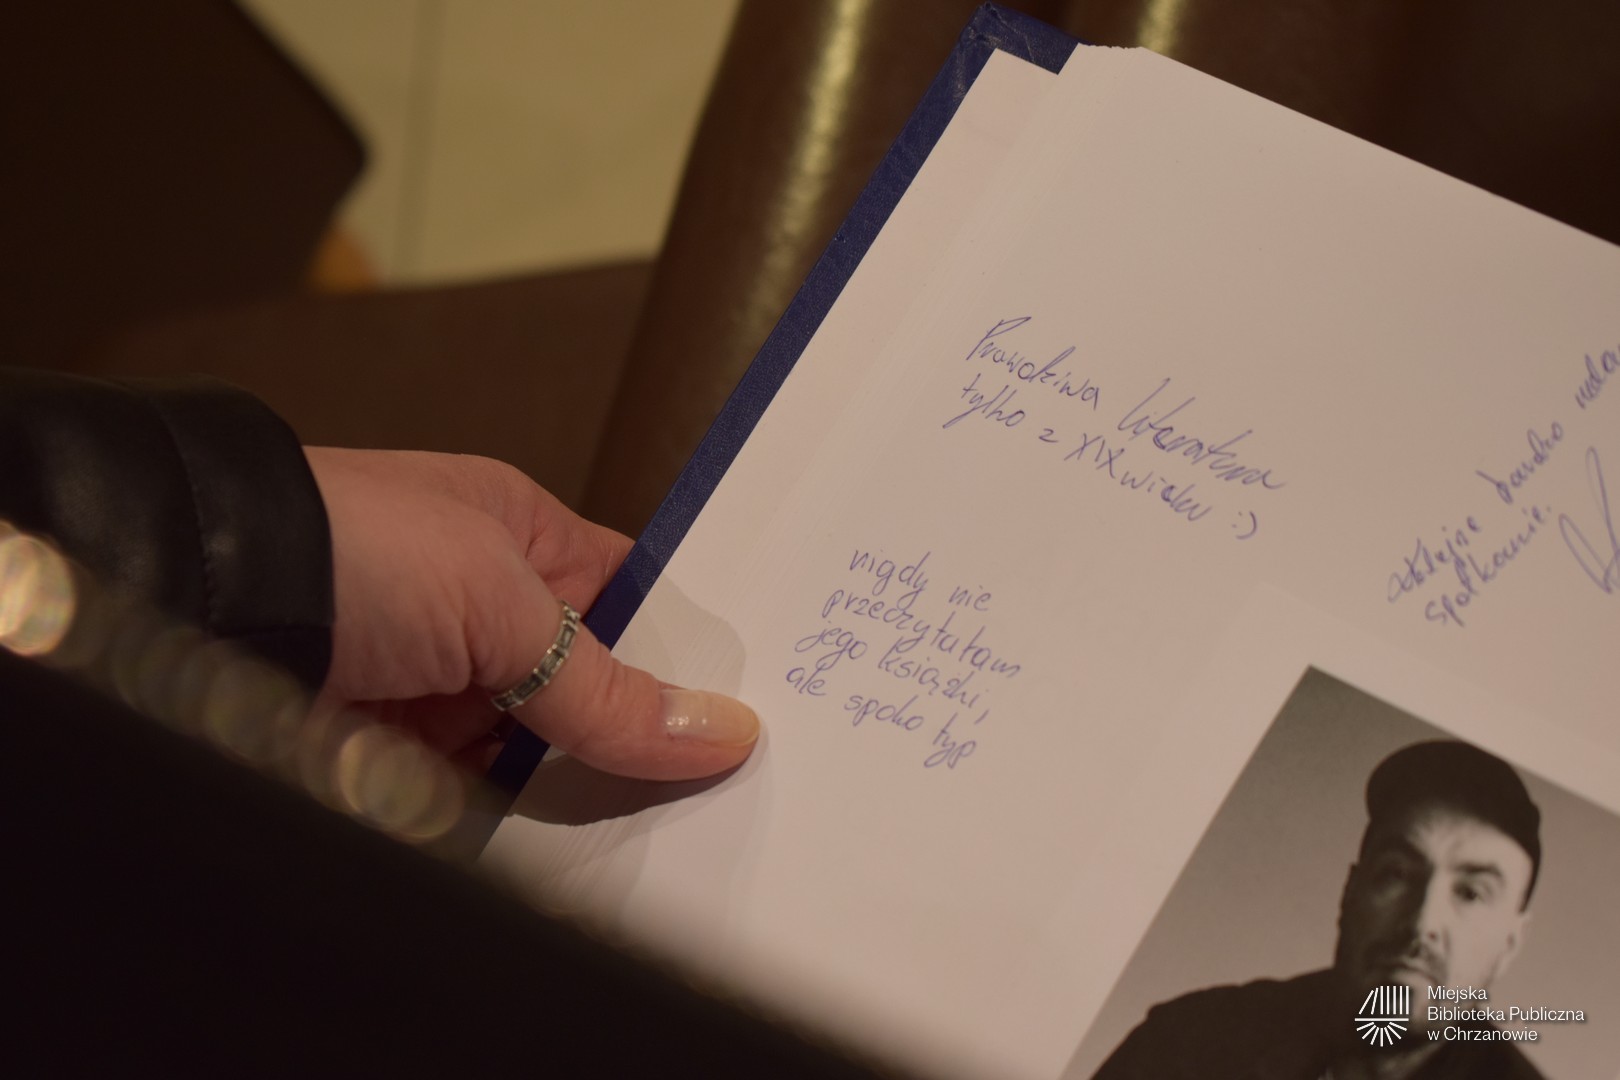 Prawdziwa literatura
tylko z XIX wieku :)
nigdy nie
przeczytałam
jego książki,
ale spoko typ
bardzo
spotkanie.
Miejska
Biblioteka Publiczna
w Chrzanowie